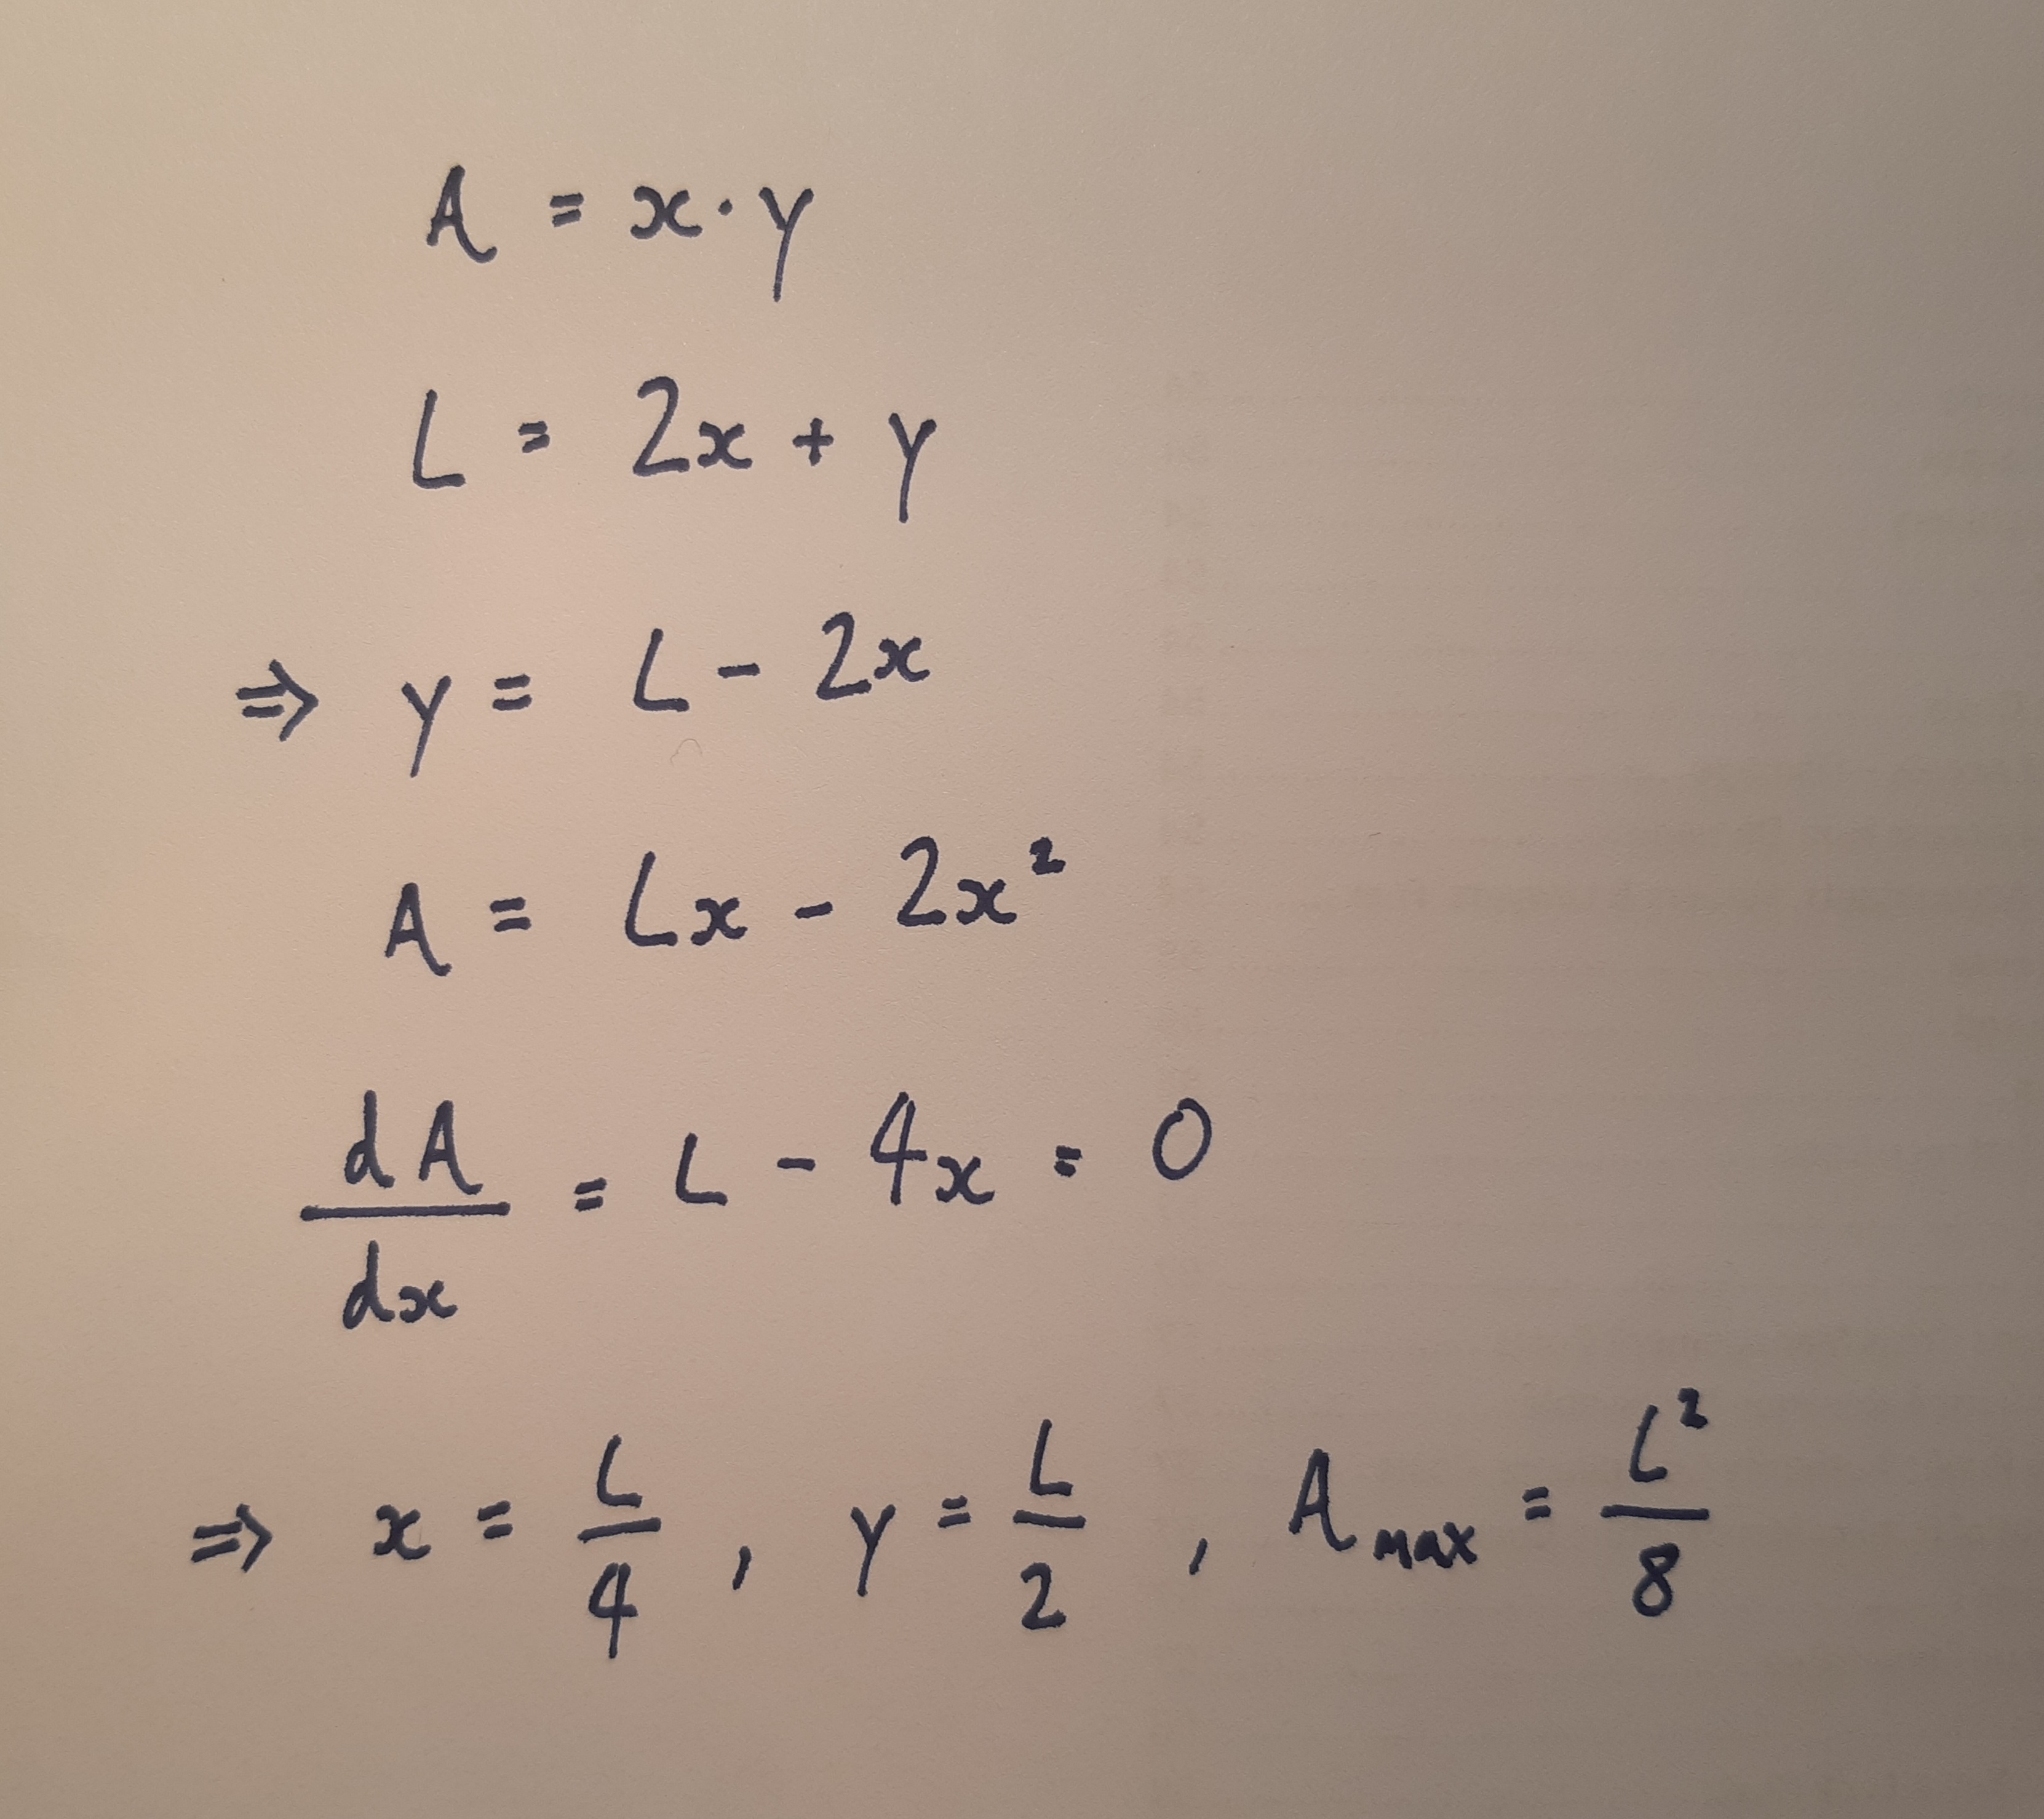 A = x · y
L = 2x + y
⇒ y = L - 2x
A = Lx - 2x²
dA/dx = L - 4x = 0
⇒ x = L/4 , y = L/2 , A max = L²/8